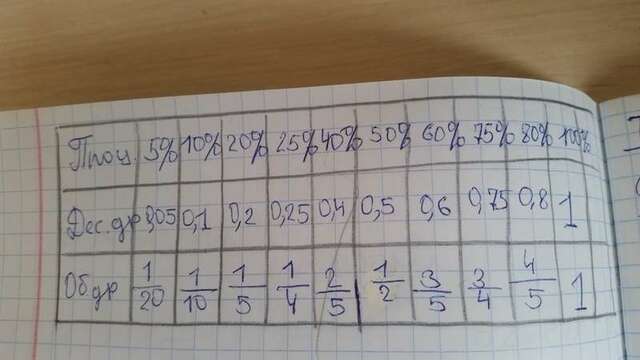 Проц. 5% 10% 20% 25% 40% 50% 60% 75% 80% 100%
Дес.др 0,05 0,1 0,2 0,25 0,4 0,5 0,6 0,75 0,8 1
Об.др 1/20 1/10 1/5 1/4 2/5 1/2 3/5 3/4 4/5 1